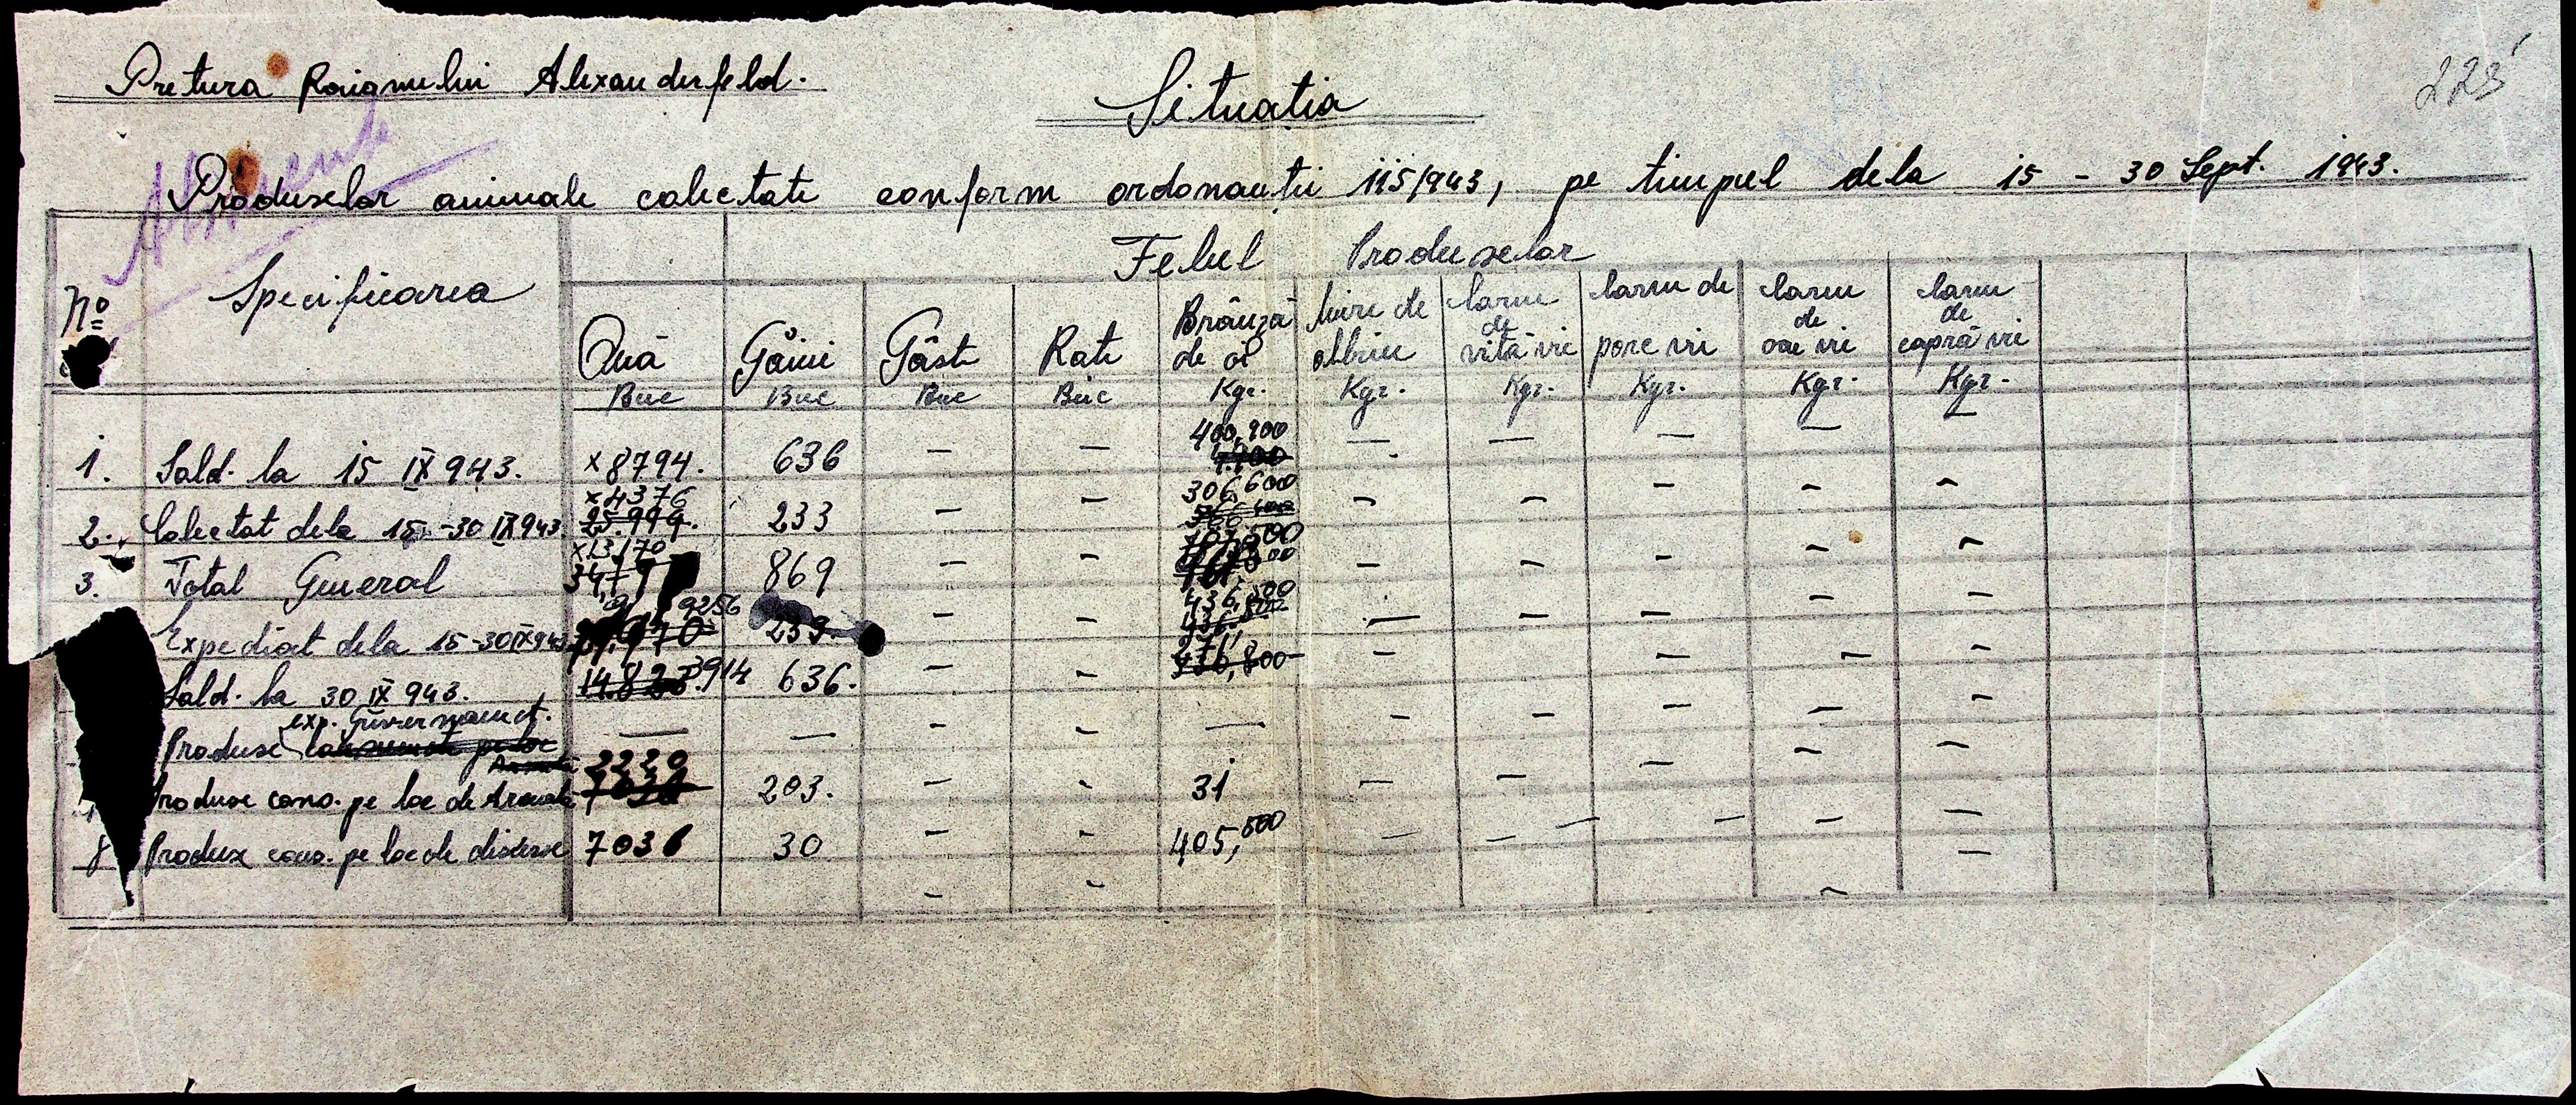 Pretura Raionului Alexanderfeld.
Situatia
223
Produselor animale colectate conform ordonantii 115/943, pe timpul dela 15 - 30 Sept. 1943.
Felul Produselor
No Specificarea
Ouă Găini Gâste Rate Brânză de oi Miere de albine Carne de vită vie Carne de porc vii Carne de oae vii Carne de capră vii
Buc Buc Buc Buc Kgr. Kgr. Kgr. Kgr. Kgr. Kgr.
1. Sald. la 15 IX 943. x 8794. 636 — — 400,900 — — — — —
2. Colectat dela 15 - 30 IX 943 x 4376 25.999. 233 — — 306,600 — — — — —
3. Total General x 13,170 869 — — 707,500 — — — — —
Expediat dela 15-30 IX 943 9256 233. — — 436,500 — — — — —
Sald. la 30 IX 943. 3914 636. — — 271 — — — — —
Produse exp. Guvernament. — — — — — — — — — —
Produse cons. pe loc de Armata 2220 203. — - 31 — — — — —
8 Produse cons. pe loc de diverse 7036 30 — - 405,500 — — — — —